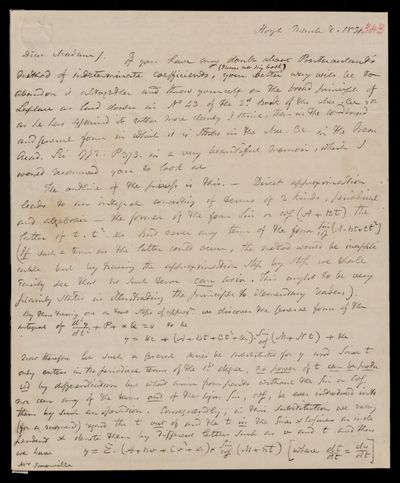 March 8. 1831
Dear Madam/. If you have any doubts about Pontecoulant's
(I have not his book)
method of indeterminate coefficients, your better way will be to
abandon it altogether and throw yourself on the broad principle of
Laplace as laid down in No 43 of the 2d Book of the Mec. Cel or
as he has explained it rather more clearly I think, than in the condensed
and general form in which it is stated in the Mec. Cel. in the Mem
Acad. Sci. 1772. P 373. in a very beautiful memoir, which I
would recommend you to look at
The outline of the process is this. — Direct approximation
leads to an integral consisting of terms of 2 kinds, periodical
and algebraic — the former of the form sin or cos (A + Bt) the
latter of t, t² &c but never any term of the form
(If such a term as the latter could occur, the method would be inapplicable
but by tracing the approximation step by step we shall
easily see that no such term can arise. This ought to be very
plainly stated in illustrating the principle to elementary readers).
By thus tracing one or two steps of approxn. we discover the general form of the
integral of d²y/dt² + Py + Q = 0 to be
y = &c + (A + Bt + Ct² + &c) sin/cos (M + Nt) + &c.
Now therefore let such a general series be substituted for y and since t
only enters in the periodical terms of the 1st degree, no power of t can be produced
by differentiation but what arise from parts without the sin or cos
nor can any of the terms out of the sign sin, cos, be ever introduced into
them by such an operation. Consequently, in this substitution we may
(for a moment) regard the t out of and the t in the sines & cosines as independent
& denote them by different letters such as v and t and thus
we have
y = Σ. (A + Bv + Cv² + &c) × sin/cos (M + Nt) [where dt/dt = dv/dt]
Mrs Somerville